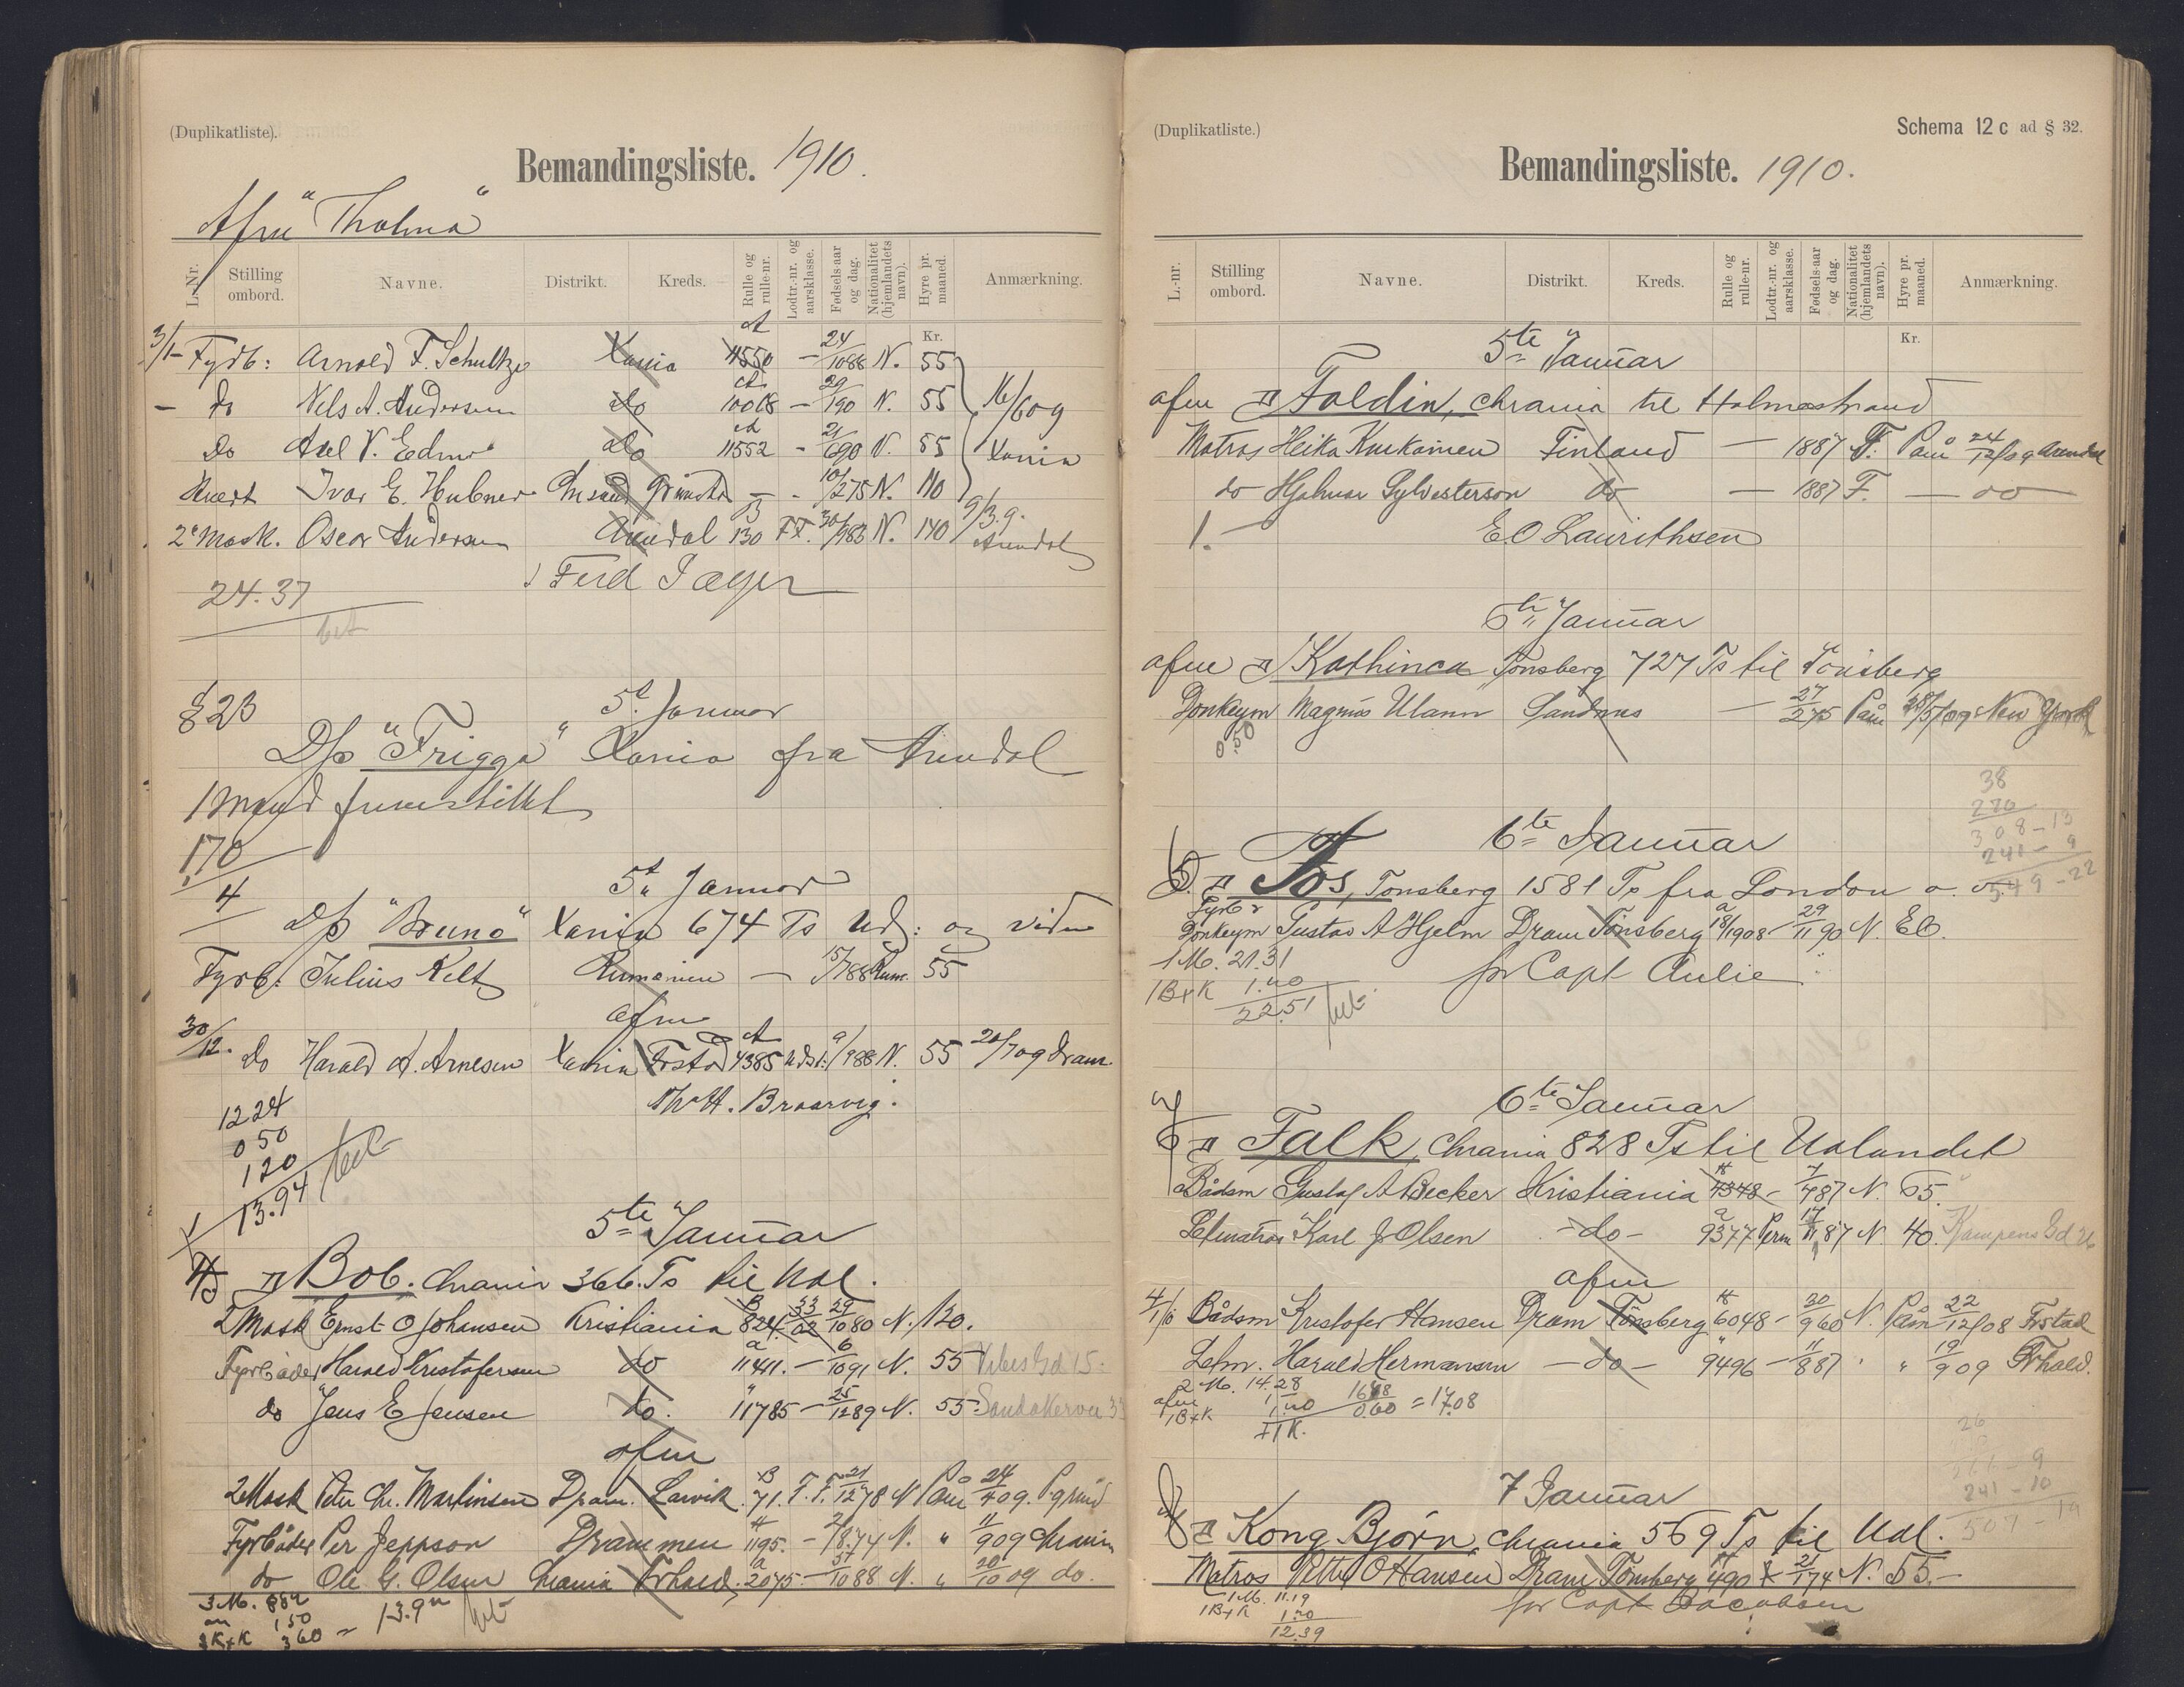 (Duplikatliste).
Bemandingsliste. 1910.
"Thelma"
L.-Nr. Stilling ombord. Navne. Distrikt. Kreds. Rulle og rulle-nr. Lodtr.-nr. og aarsklasse. Fødsels-aar og dag. Nationalitet (hjemlandets navn). Hyre pr. maaned. Anmærkning.
Kr.
3/1 – Fyrb: Arnold F. Schultze Xania A 11550 – 24/1088 N. 55
– do Nels A. Andersen do A 10068 – 29/190 N. 55 16/609
Do Axel V. do A 11552 – 21/690 N. 55 Xania
Ivar E. Hubner – 10/275 N. 110
2' Mask. Oscar Andersen Arendal B 130 F.F. 30/983 N. 140 9/3.9. Arendal
Ferd Jæger
24.37
bet
§ 23
5t Januar
D/s "Frigga" Xania fra Arendal
1 Mand
1.70
4
5t Januar
D/s "Bruno" Xania 674 Ts Udl: og
Fyrb: Julius Kelt Rumænien – 15/788 Rum. 55
afm
30/12. do Harald A. Arnesen Xania Frstad A 4385 Udst. 9/988 N. 55 20/709 Dram.
Th. H. Braarvig.
12 24
0 50
1 20
13.94 bet
5te Januar
4/1 D Bob. Chrania 366. Ts til Udl.
2 Mask Ernst O Johansen Kristiania B 824. 33/02 29/1080 N. 120.
Fyrbøder Harald Kristofersen do a 11411. – 6/1091 N. 55 Vibes Gd 15.
do Jens E Jensen do. " 11785 – 25/1289 N. 55. Sandakerveien 33
afm
2 Mask Peter Chr. Martinsen Dram. Larvik B 71. F.F. 21/1278 N Paam 24/409. P.grund
Fyrbøder Per Jeppson Drammen A 1195. – 2/874 N. " 11/909 Chrania
do Ole G. Olsen Chrania Frhald. a 2075 – 5/1088 N. " 20/1009 do.
3 M. 882
150
3 K+K 360 = 13.92 bet
(Duplikatliste.)
Schema 12 c ad § 32.
Bemandingsliste. 1910.
L.-nr. Stilling ombord. Navne. Distrikt. Kreds. Rulle og rulle-nr. Lodtr.-nr. og aarsklasse. Fødsels-aar og dag. Nationalitet (hjemlandets navn). Hyre pr. maaned. Anmærkning.
Kr.
5te Januar
afm D Foldin, Chrania til Holmestrand
Matros Heika Kukainen Finland – 1887 F. Paam 24/12/09 Arendal
do Hjalmar Sylvesterson do – 1887 F. – do –
1. – E. O Laurithsen
6te Januar
afm D Kathinca Tønsberg 727 Ts til Tønsberg
Donkeym Magnus Ulann Sandnes – 27/275 Paam 28/5/09 New York
0.50
38
270
308 – 13
241 – 9
549 – 22
6te Januar
D Fos, Tønsberg 1581 Ts fra London
Fyrb & Donkeym Gustav A Hjelm Dram Tønsberg a 18/1908 – 29/1190 N. Eb.
1 M. 21.31
for Capt Aulie
1 B+K 1.20
22.51 bet
6te Januar
D Falk, Chrania 828 Ts til Udlandet
Baadsm Gustaf A Becker Kristiania A 4348 – 7/487 N. 65.
Letmatros Karl J Olsen – do – a 9377 Perm 17/1187 N. 40. Kampens Gd 26
afm
4/1/0 Baadsm Kristofer Hansen Dram Tønsberg A 6048 – 30/960 N. Paam 22/12/08 Frstad
Letm. Harald Hermansen – do – " 9496 – 11/887 " " 19/909 Frhald.
2 M. 14.28 16.48
afm 1 B+K 1.20 0.60 = 17.08
7 Januar
26
241 – 10
507 – 19
D Kong Bjørn, Chrania 569 Ts til Udl.
Matros Petter O Hansen Dram Tønsberg A 490 21/174 N. 55. –
1 M. 11.19
for Capt Jacobsen
1 B+K 1.20
12.39